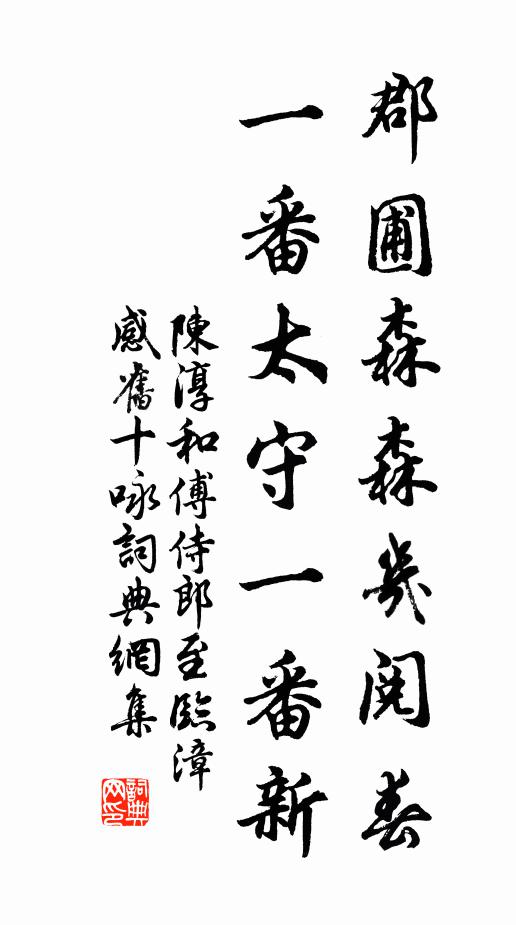 郡圃森森幾閱春
一番太守一番新
陳淳和傅侍郎至臨漳
感舊十咏詞典網集
詞典網印